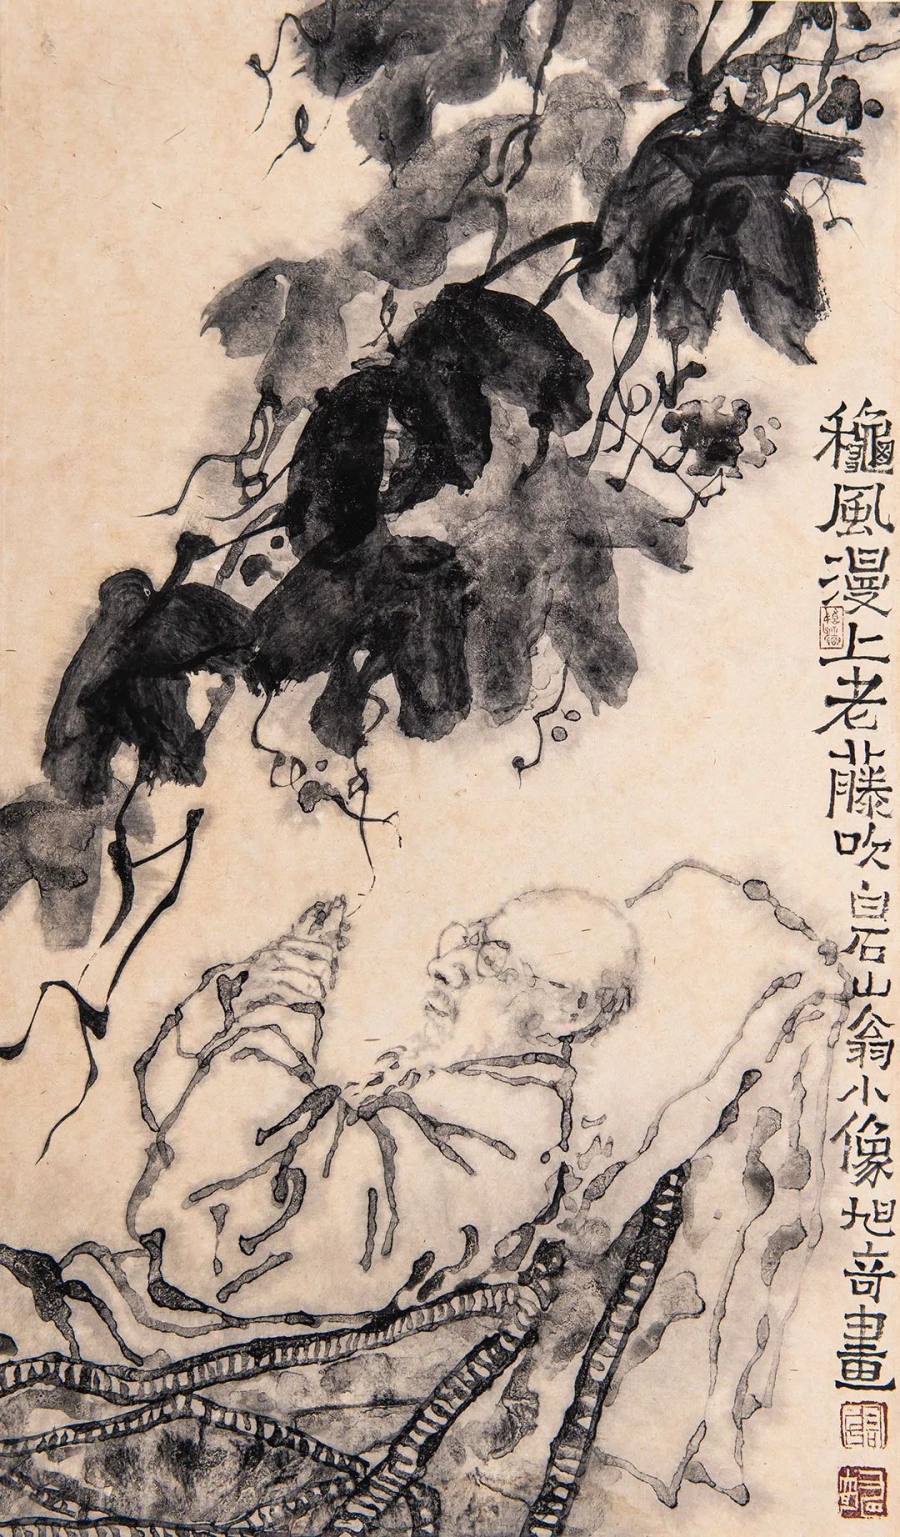 龝風漫上老藤吹白石山翁小像旭竒畫